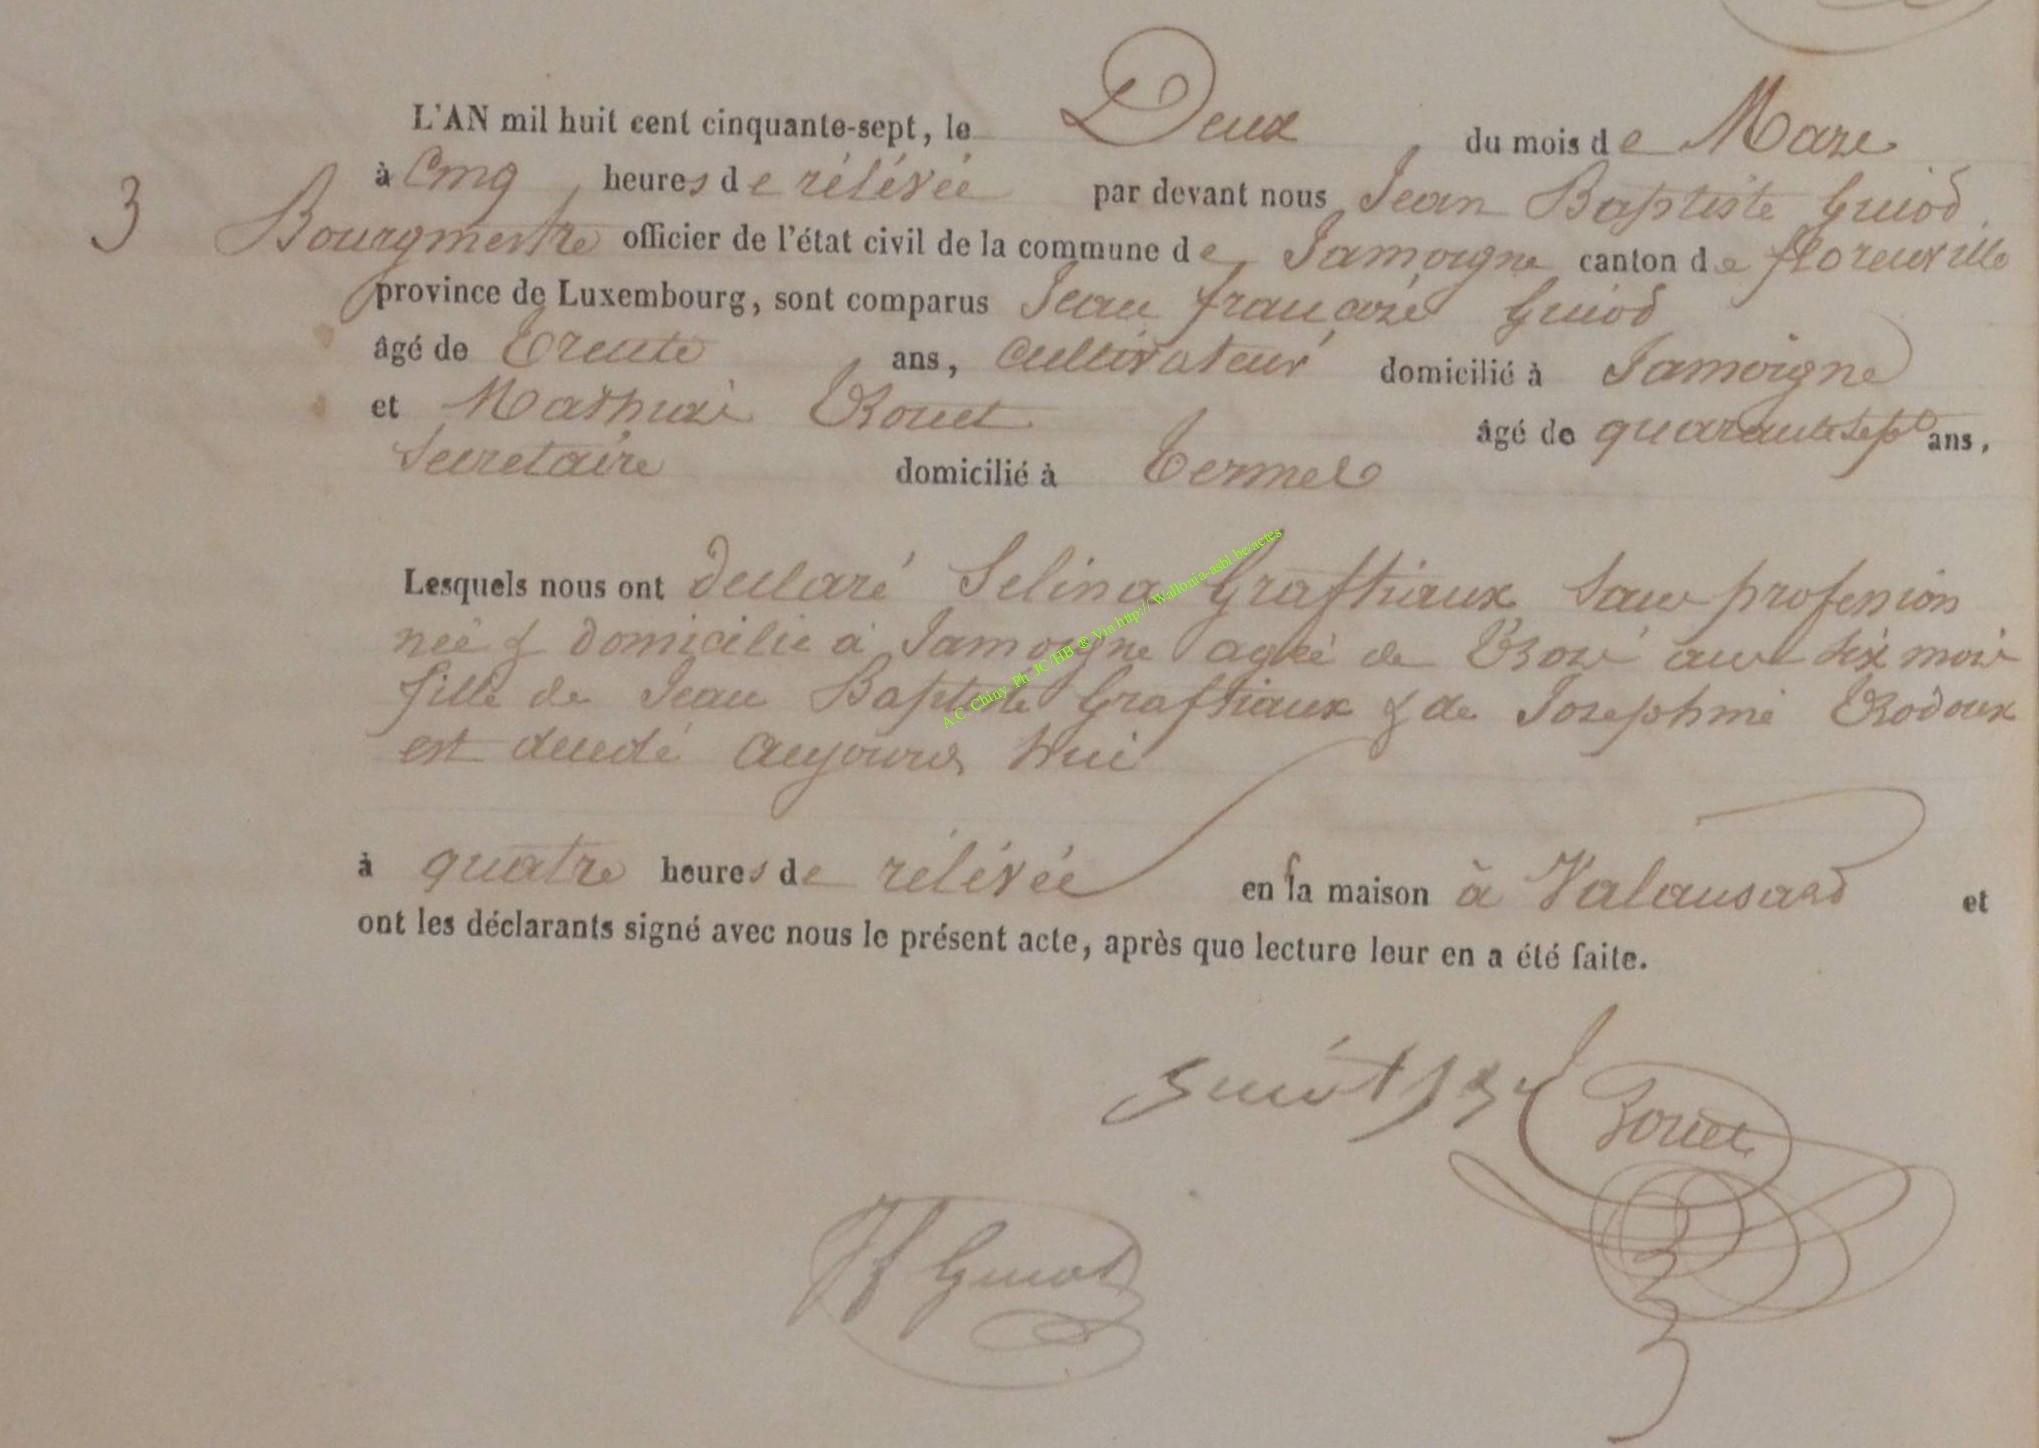 L'AN mil huit cent cinquante-sept, le Deux du mois de Mars
3 à Cinq heures de rélévée par devant nous Jean Baptiste Guiot
Bourgmestre officier de l'état civil de la commune de Jamoigne canton de florenville
province de Luxembourg, sont comparus Jean françois Guiot
âgé de trente ans, Cultivateur domicilié à Jamoigne
et Mathieu Rouet âgé de quarante sept ans,
Secretaire domicilié à Termes
Lesquels nous ont déclaré Selina Graftiaux sans profession
née & domicilié à Jamoigne agée de trois ans six mois
fille de Jean Baptiste Graftiaux & de Josephine Rodoux
est decedé aujourd hui
A.C. Chiny Ph JC HB ® Via http://Wallonia-asbl.be/actes
à quatre heures de rélévée en la maison à Valansard et
ont les déclarants signé avec nous le présent acte, après que lecture leur en a été faite.
Guiot
Guiot